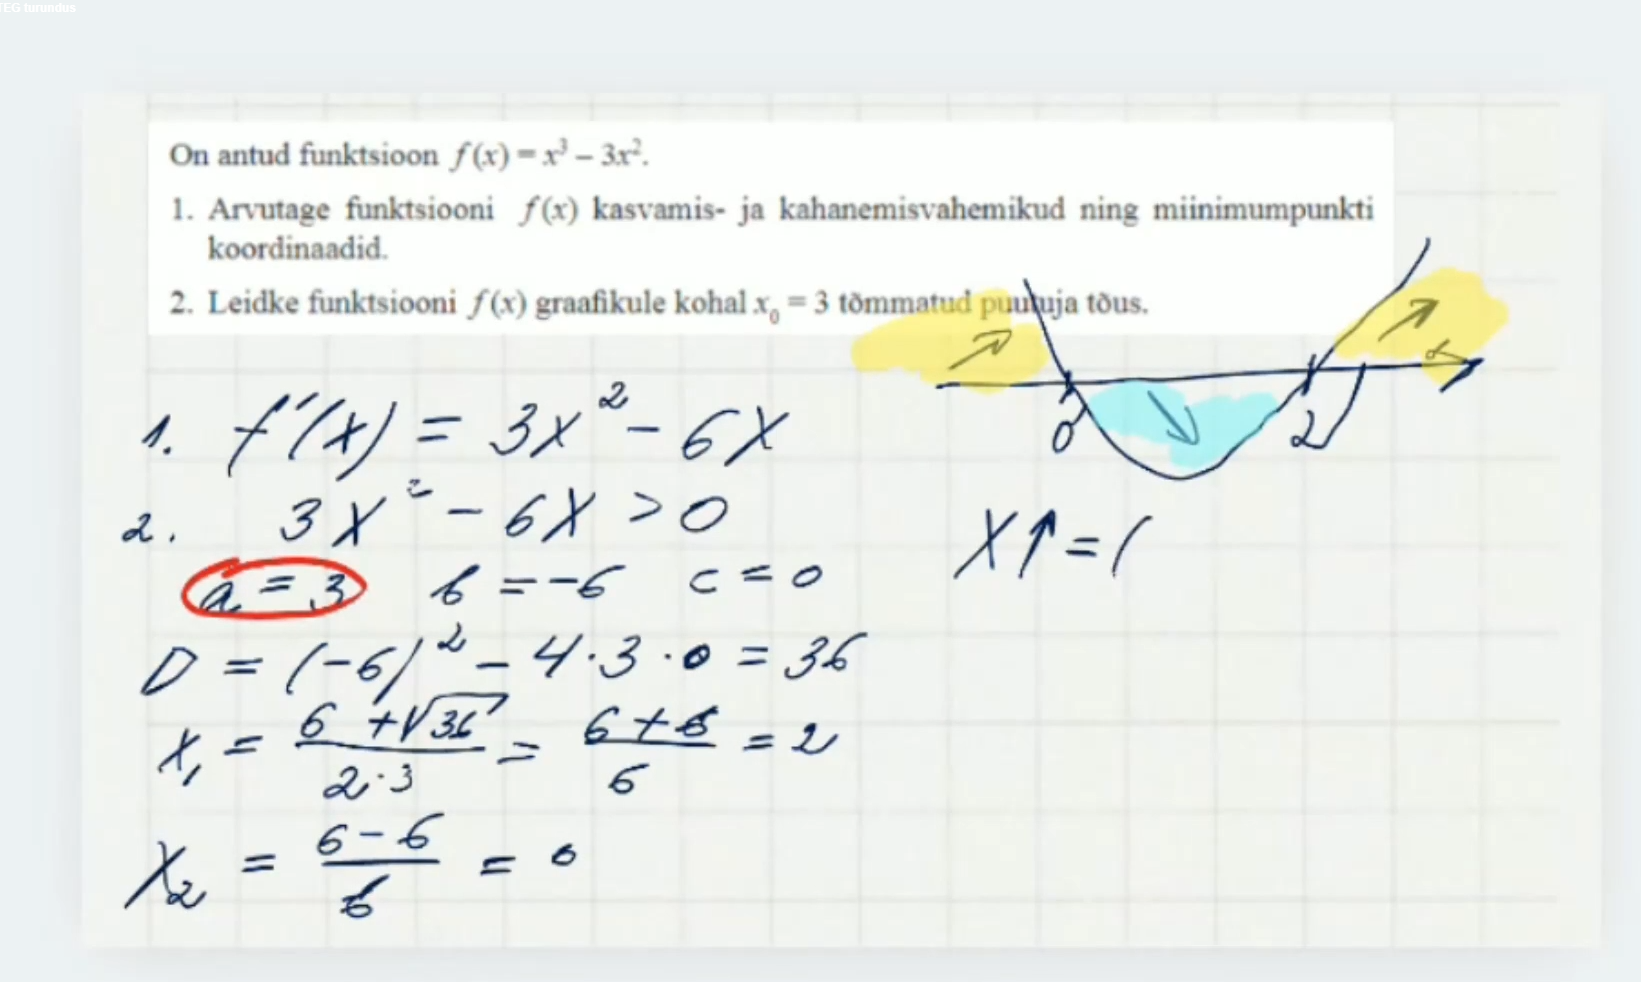 TEG turundus
On antud funktsioon f(x) = x³ – 3x².
1. Arvutage funktsiooni f(x) kasvamis- ja kahanemisvahemikud ning miinimumpunkti
koordinaadid.
2. Leidke funktsiooni f(x) graafikule kohal x₀ = 3 tõmmatud puutuja tõus.
0 2
1. f'(x) = 3x² - 6x
2. 3x² - 6x > 0
a = 3 b = -6 c = 0
D = (-6)² - 4·3·0 = 36
x₁ = (6 + √36)/(2·3) = (6+6)/6 = 2
x₂ = (6-6)/6 = 0
X↑ = (